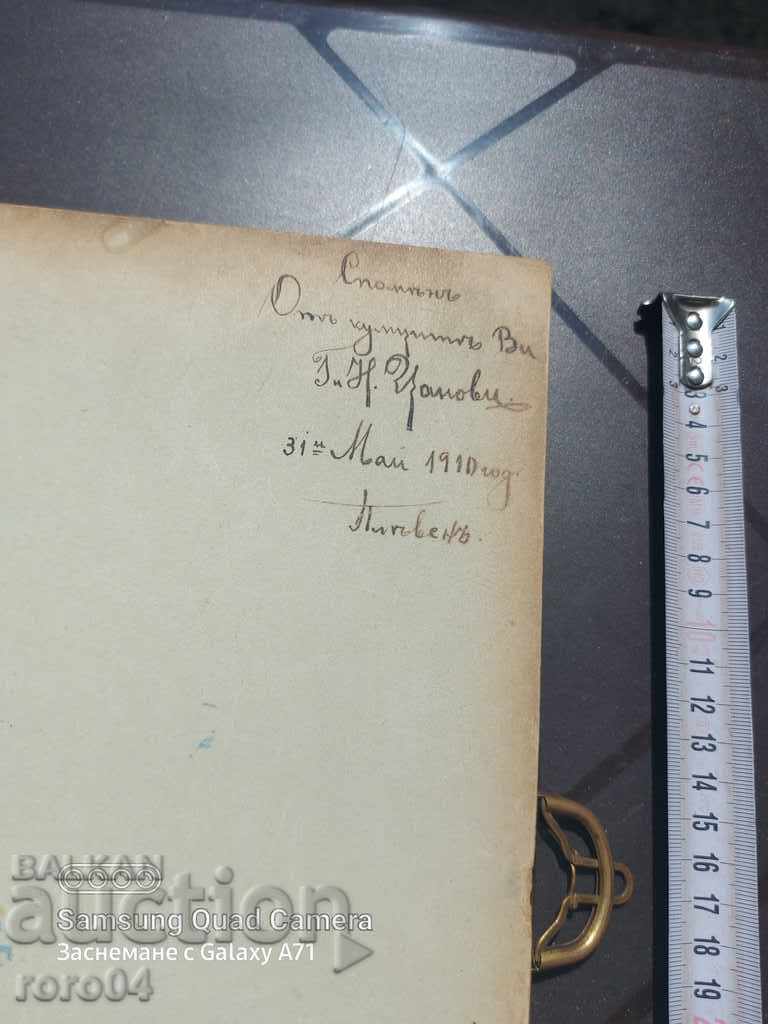 Споменъ
Отъ кумцитѣ Ви
Г. и Н. Цанови
31й Май 1910 год.
Плѣвенъ.
1 2 3
2 3 4 5 6 7 8 9 10 11 12 13 14 15 16 17 18 19
BALKAN
auction
Samsung Quad Camera
Заснемане с Galaxy A71
roro04